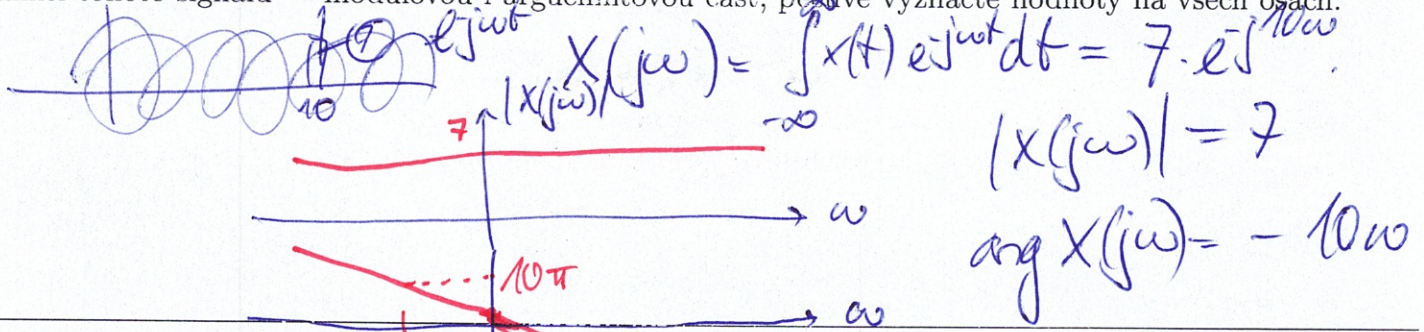 modulovou i argumentovou část, pečlivě vyznačte hodnoty na všech osách.
e^{-jωt}
X(jω) = ∫_{-∞}^{∞} x(t) e^{-jωt} dt = 7 · e^{-j10ω}
10
|X(jω)|
7
|X(jω)| = 7
ω
arg X(jω) = - 10ω
10π
ω